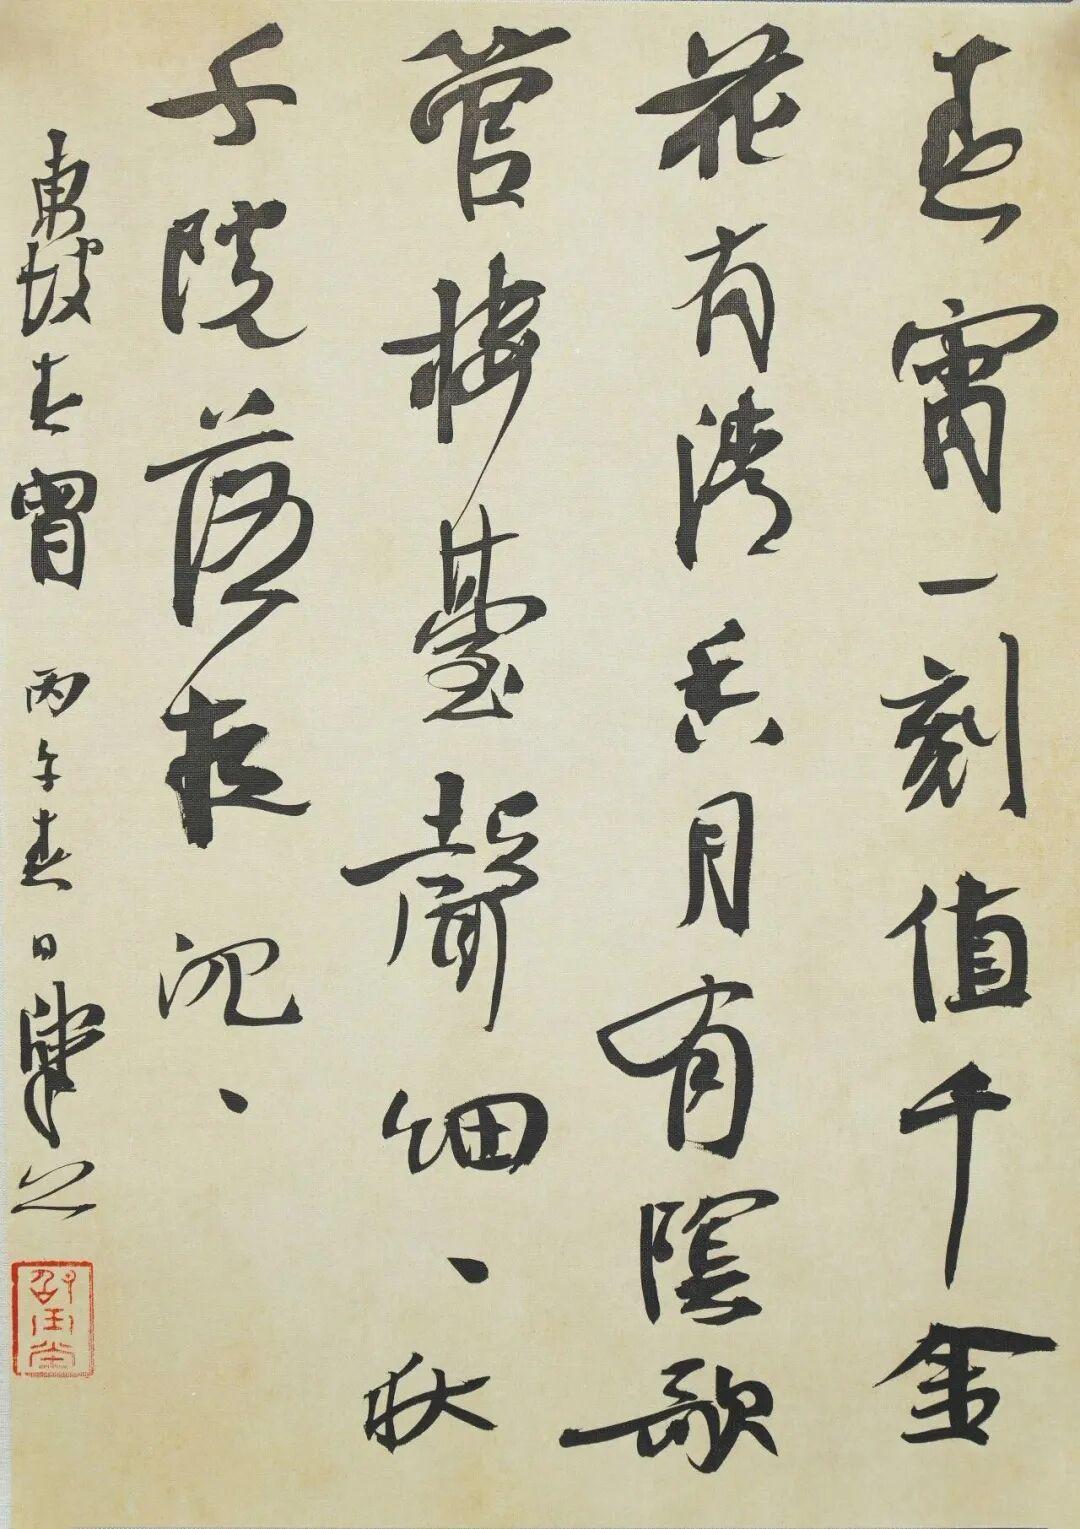 春宵一刻值千金
花有清香月有陰歌
管樓臺聲細、秋
千院落夜沉、
東坡春宵 丙午春日肇之